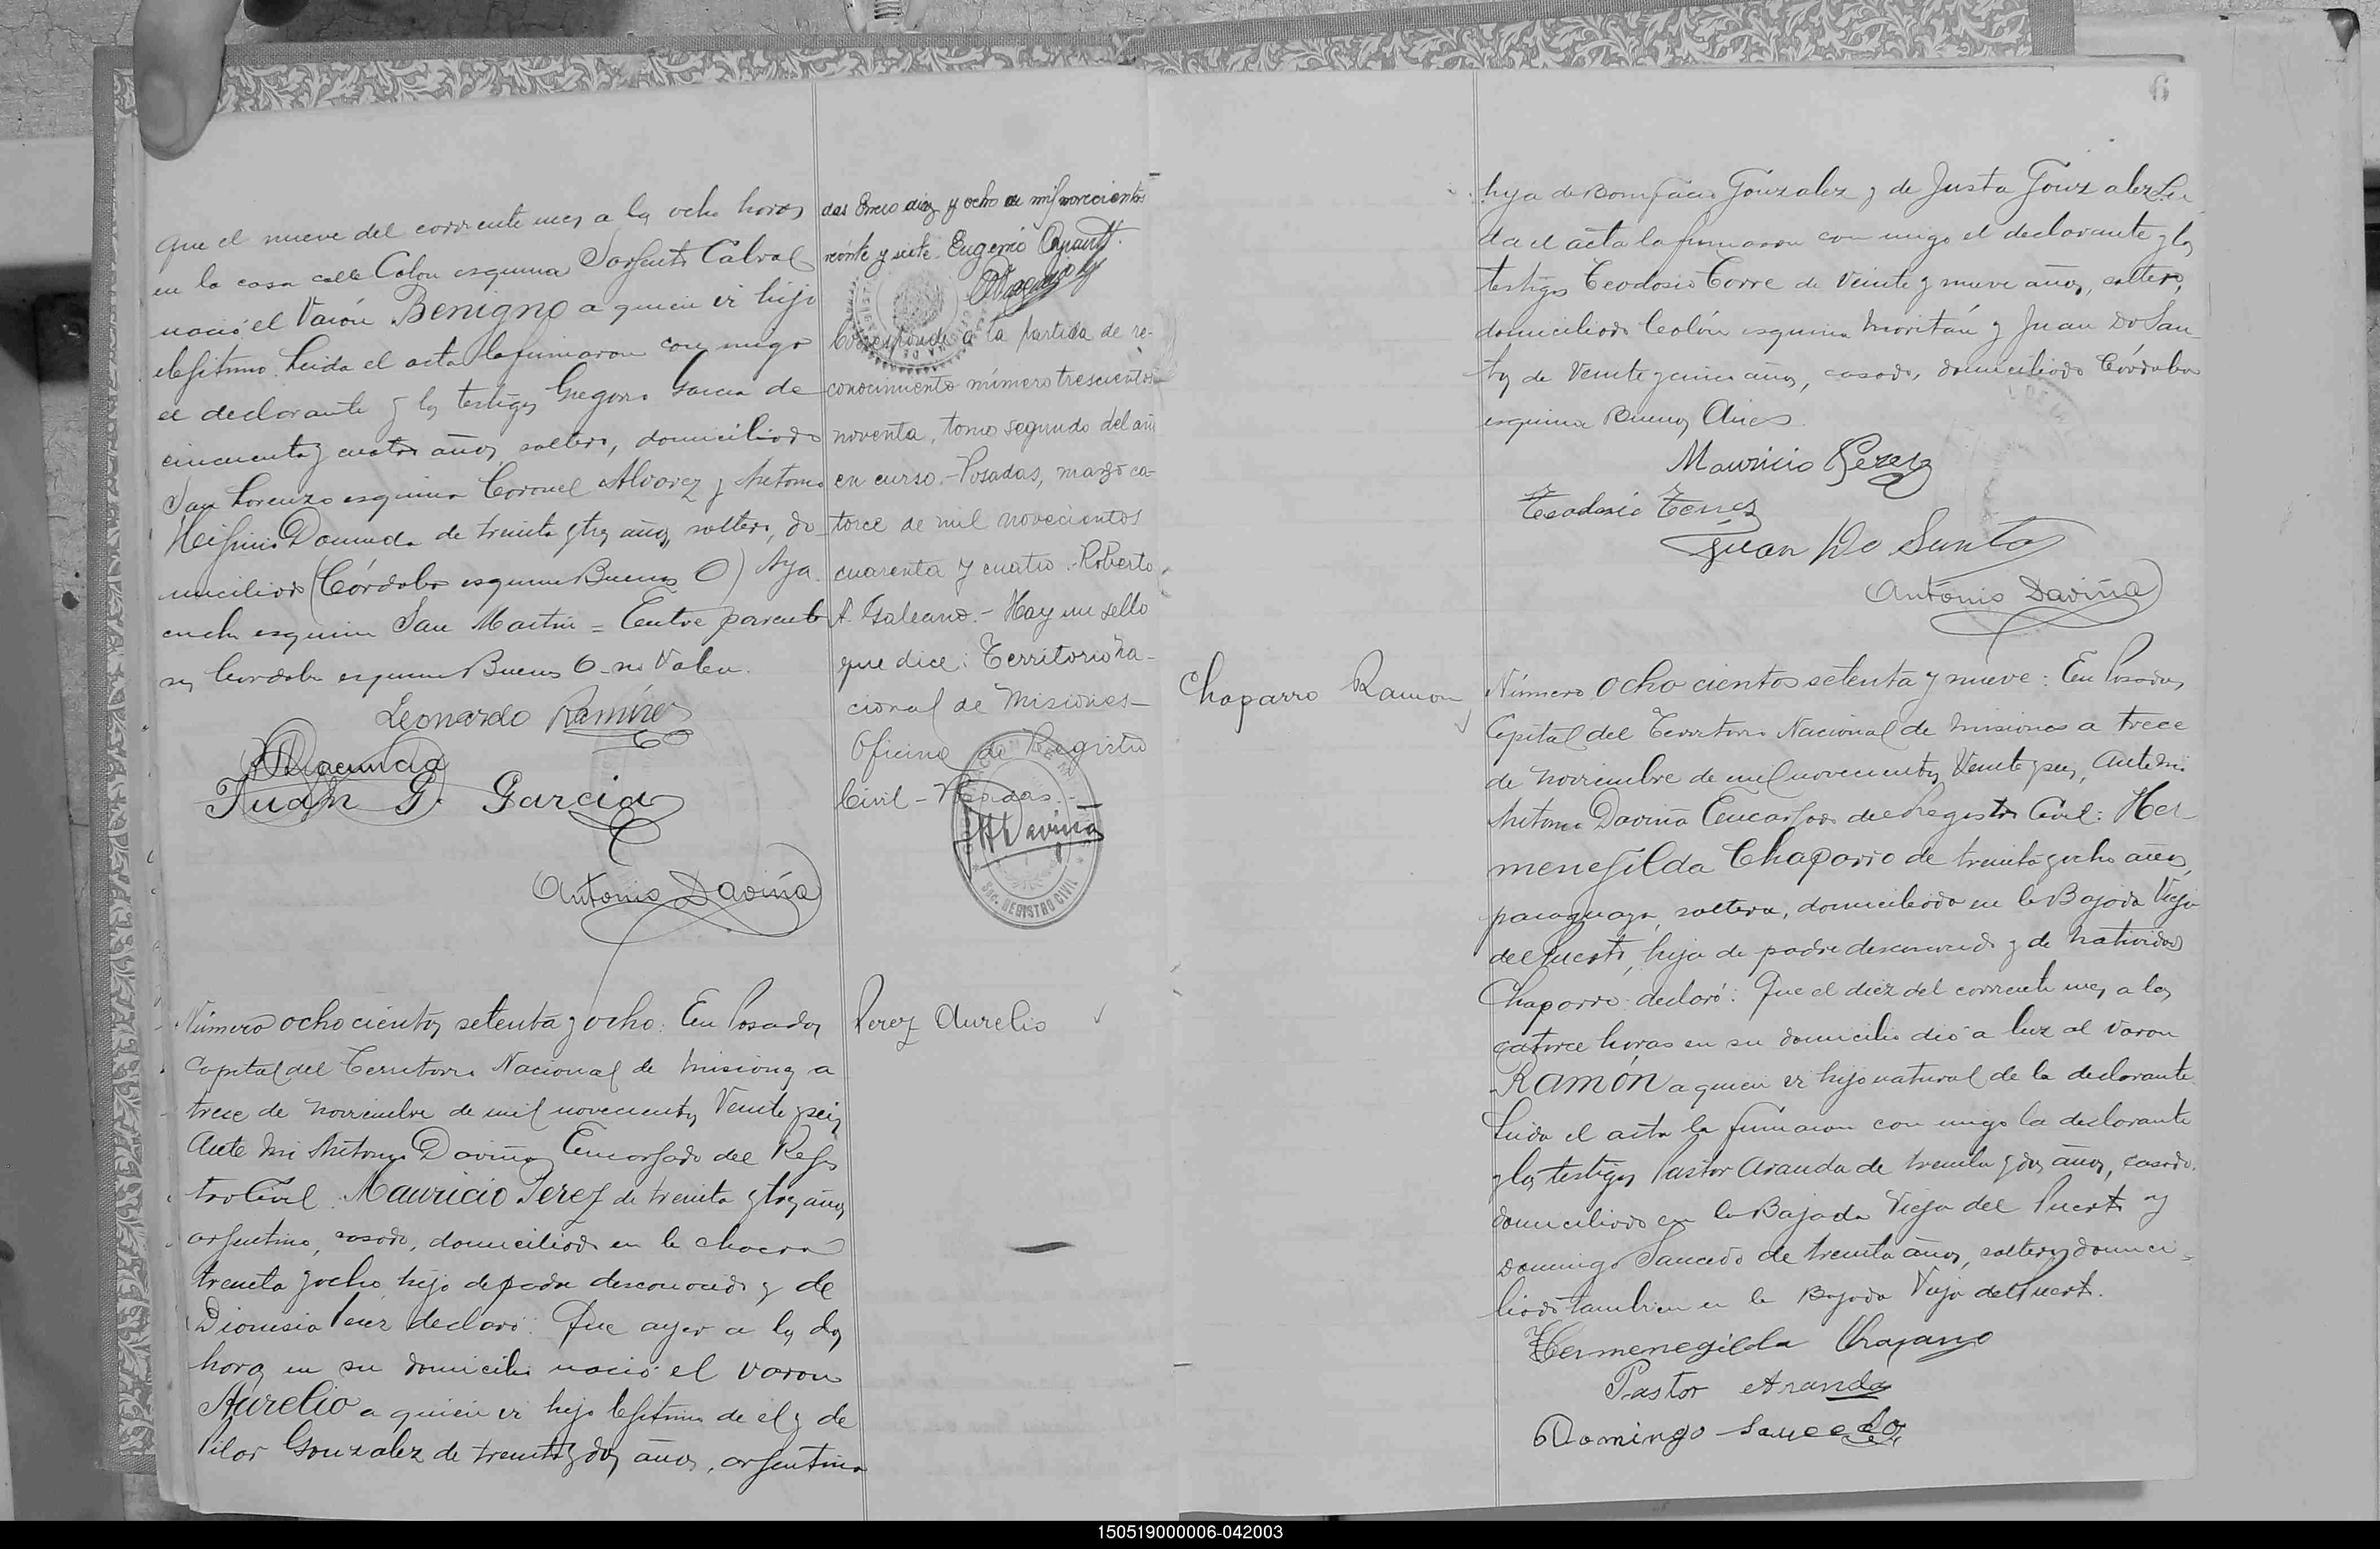 que el nueve del corriente mes a las ocho horas
en la casa calle Colon esquina Sargento Cabral
nació el Varón Benigno a quien es hijo
ilegitimo. Leida el acta la firmaron con migo
el declarante y los testigos Gregorio Garcia de
cincuenta y cuatro años, soltero, domiciliado
San Lorenzo esquina Coronel Alvarez y Antonio
de treinta y tres años, soltero, do
miciliado (Córdoba esquina Buenos O) Aya
cucho esquina San Martin = Entre parente
sis Cordoba esquina Buenos O - no Valen.
Leonardo Ramirez
Juan G. Garcia
Antonio Daviña
Número ochocientos setenta y ocho: En Posadas
Capital del Territorio Nacional de Misiones a
trece de noviembre de mil novecientos Veinte y seis,
Ante mi Antonio Daviña Encargado del Regis
tro Civil: Mauricio Perez de treinta y tres años
argentino, casado, domiciliado en la chacra
treinta y ocho, hijo de padre desconocido y de
Dionisia Perez declaró: Que ayer a las dos
horas en su domicilio nació el varon
Aurelio a quien es hijo legitimo de el y de
Pilar Gonzalez de treinta y dos años, argentina
das Enero diez y ocho de mil novecientos
veinte y siete. Eugenio
Corresponde a la partida de re-
conocimiento número trescientos
noventa, tomo segundo del año
en curso.- Posadas, marzo ca-
torce de mil novecientos
cuarenta y cuatro.- Roberto
A. Galeano.- Hay un sello
que dice: Territorio Na-
cional de Misiones-
Oficina de Registro
Civil - Posadas.-
A Daviña
REGISTRO CIVIL
Perez Aurelio
6
hija de Bonifacio Gonzalez y de Justa Gonzalez. Lei
da el acta la firmaron con migo el declarante y los
testigos Teodosio Torre de Veinte y nueve años, soltero,
domiciliado Colón esquina Moritán y Juan Do San
tos de Veinte y cinco años, casado, domiciliado Córdoba
esquina Buenos Aires.
Mauricio Perez
Teodosio Torres
Juan Do Santo
Antonio Daviña
Chaparro Ramon
Número ochocientos setenta y nueve: En Posadas,
Capital del Territorio Nacional de Misiones a trece
de noviembre de mil novecientos Veinte y seis, Ante mi
Antonio Daviña Encargado del Registro Civil: Her-
menegilda Chaparro de treinta y ocho años,
paraguaya, soltera, domiciliada en la Bajada Vieja
del Puerto, hija de padre desconocido y de Natividad
Chaparro declaró: Que el diez del corriente mes a las
catorce horas en su domicilio dió a luz al varon
Ramón a quien es hijo natural de la declarante.
Leida el acta la firmaron con migo la declarante
y los testigos Pastor Aranda de treinta y dos años, casado,
domiciliado en la Bajada Vieja del Puerto y
Domingo Saucedo de treinta años, soltero, domici-
liado tambien en la Bajada Vieja del Puerto.
Hermenegilda Chaparro
Pastor Aranda
Domingo Saucedo
150519000006-042003